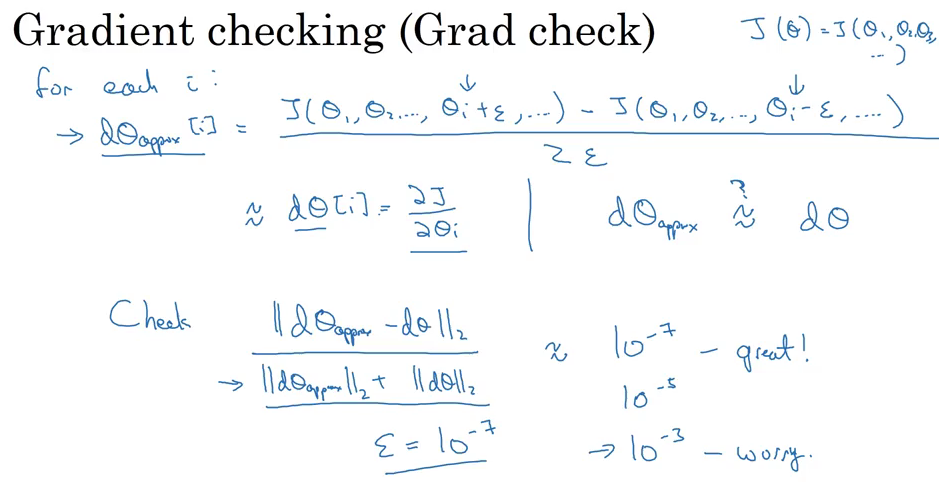 Gradient checking (Grad check)
J(θ) = J(θ₁, θ₂, θ₃, ...)
for each i:
→ dθapprox[i] = (J(θ₁, θ₂, ..., θᵢ+ε, ...) − J(θ₁, θ₂, ..., θᵢ−ε, ...)) / 2ε
≈ dθ[i] = ∂J/∂θᵢ | dθapprox ≈? dθ
Check ‖dθapprox − dθ‖₂ / (‖dθapprox‖₂ + ‖dθ‖₂) ≈ 10⁻⁷ – great!
10⁻⁵
ε = 10⁻⁷ → 10⁻³ – worry.